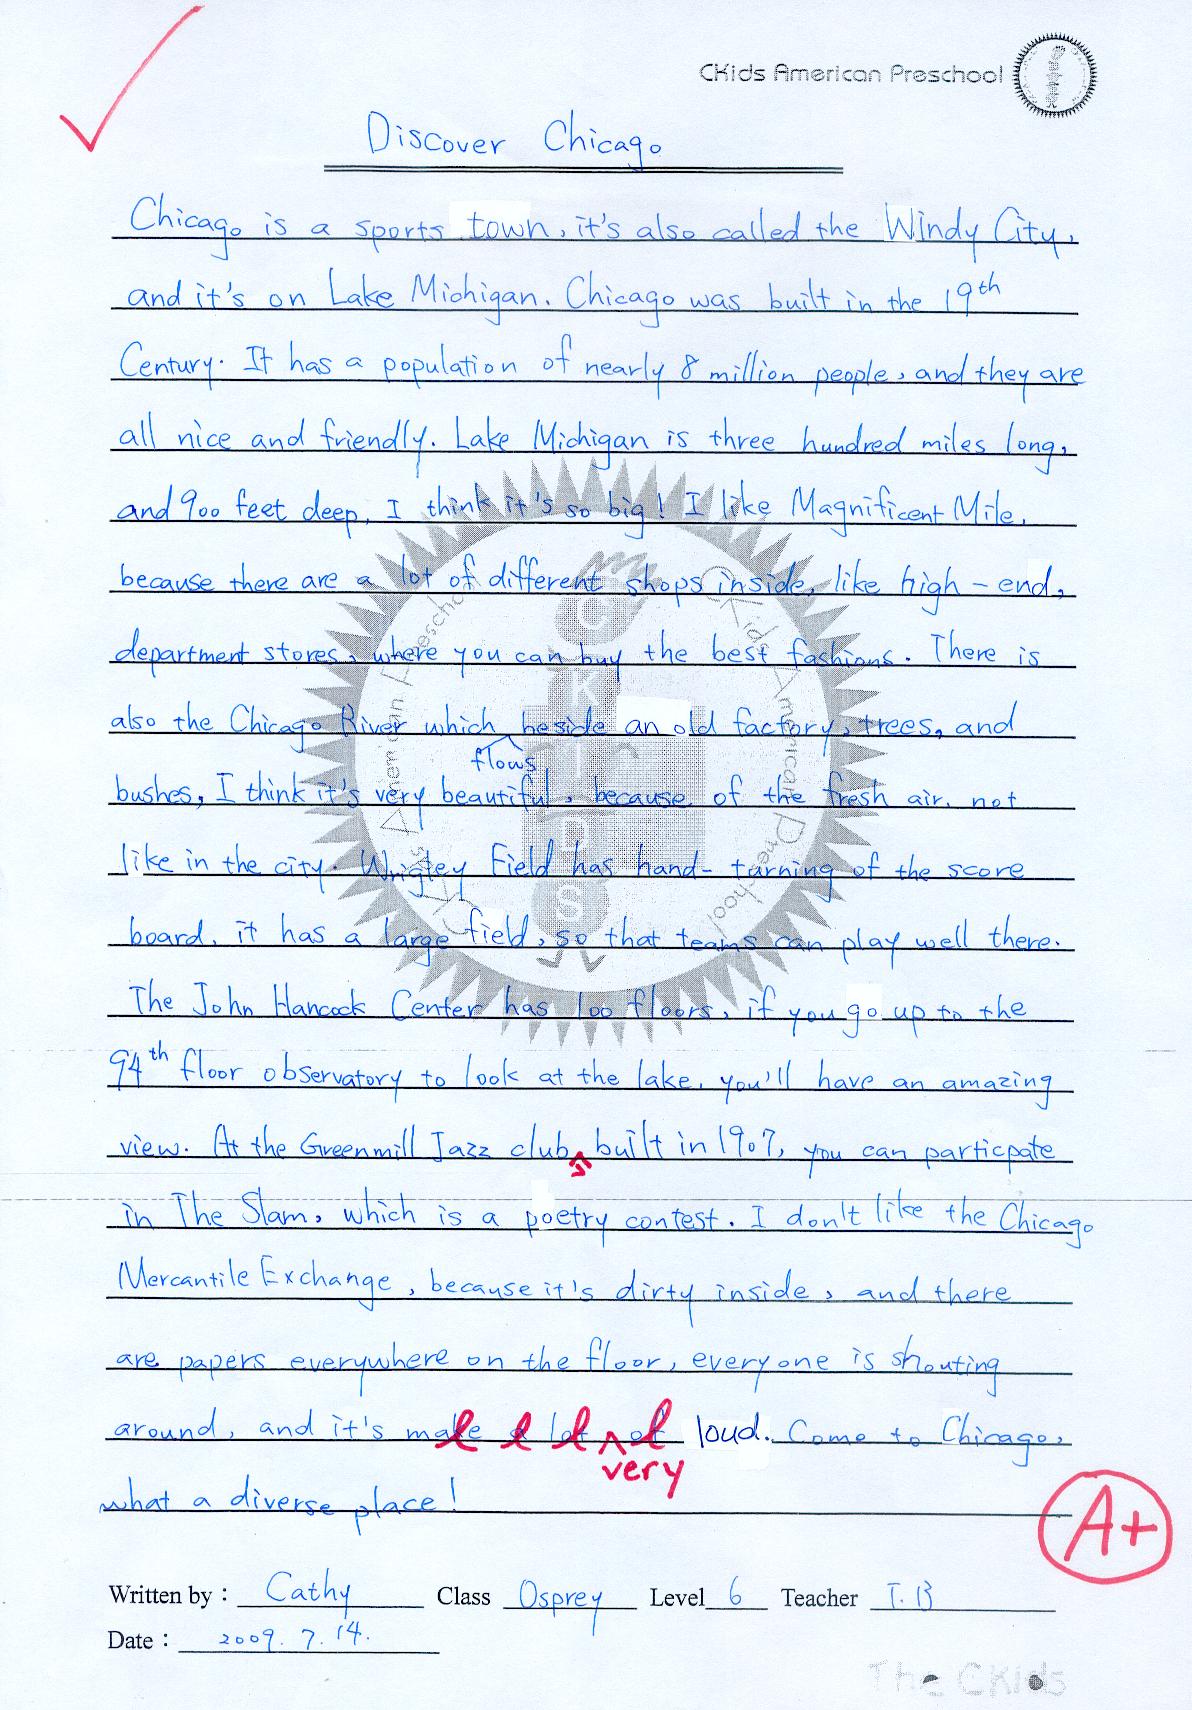 CKids American Preschool
Discover Chicago
Chicago is a sports town, it's also called the Windy City,
and it's on Lake Michigan. Chicago was built in the 19th
Century. It has a population of nearly 8 million people, and they are
all nice and friendly. Lake Michigan is three hundred miles long,
and 900 feet deep, I think it's so big! I like Magnificent Mile,
because there are a lot of different shops inside, like high-end,
department stores, where you can buy the best fashions. There is
also the Chicago River which beside an old factory, trees, and
flows
bushes, I think it's very beautiful, because of the fresh air, not
like in the city. Wrigley Field has hand-turning of the score
board, it has a large field, so that teams can play well there.
The John Hancock Center has 100 floors, if you go up to the
94th floor observatory to look at the lake, you'll have an amazing
view. At the Greenmill Jazz club, built in 1907, you can particpate
in The Slam, which is a poetry contest. I don't like the Chicago
Mercantile Exchange, because it's dirty inside, and there
are papers everywhere on the floor, everyone is shouting
around, and it's make a lot of loud. Come to Chicago,
very
what a diverse place!
A+
Written by: Cathy Class Osprey Level 6 Teacher T.B
Date: 2009. 7. 14.
The CKids